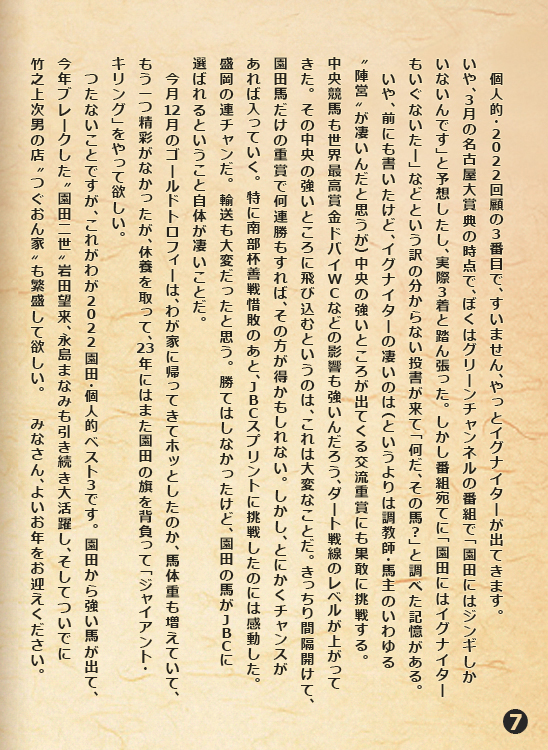 個人的・2022回顧の3番目で、すいません、やっとイグナイターが出てきます。
いや、3月の名古屋大賞典の時点で、ぼくはグリーンチャンネルの番組で「園田にはジンギしか
いないんです」と予想したし、実際3着と踏ん張った。しかし番組宛てに「園田にはイグナイター
もいぐないたー」などという訳の分からない投書が来て「何だ、その馬?」と調べた記憶がある。
いや、前にも書いたけど、イグナイターの凄いのは(というよりは調教師・馬主のいわゆる
〝陣営〟が凄いんだと思うが)中央の強いところが出てくる交流重賞にも果敢に挑戦する。
中央競馬も世界最高賞金ドバイWCなどの影響も強いんだろう、ダート戦線のレベルが上がって
きた。その中央の強いところに飛び込むというのは、これは大変なことだ。きっちり間隔開けて、
園田馬だけの重賞で何連勝もすれば、その方が得かもしれない。しかし、とにかくチャンスが
あれば入っていく。特に南部杯善戦惜敗のあと、JBCスプリントに挑戦したのには感動した。
盛岡の連チャンだ。輸送も大変だったと思う。勝てはしなかったけど、園田の馬がJBCに
選ばれるということ自体が凄いことだ。
今月12月のゴールドトロフィーは、わが家に帰ってきてホッとしたのか、馬体重も増えていて、
もう一つ精彩がなかったが、休養を取って、23年にはまた園田の旗を背負って「ジャイアント・
キリング」をやって欲しい。
つたないことですが、これがわが2022園田・個人的ベスト3です。園田から強い馬が出て、
今年ブレークした〝園田二世〟岩田望来、永島まなみも引き続き大活躍し、そしてついでに
竹之上次男の店〝つぐおん家〟も繁盛して欲しい。 みなさん、よいお年をお迎えください。
7